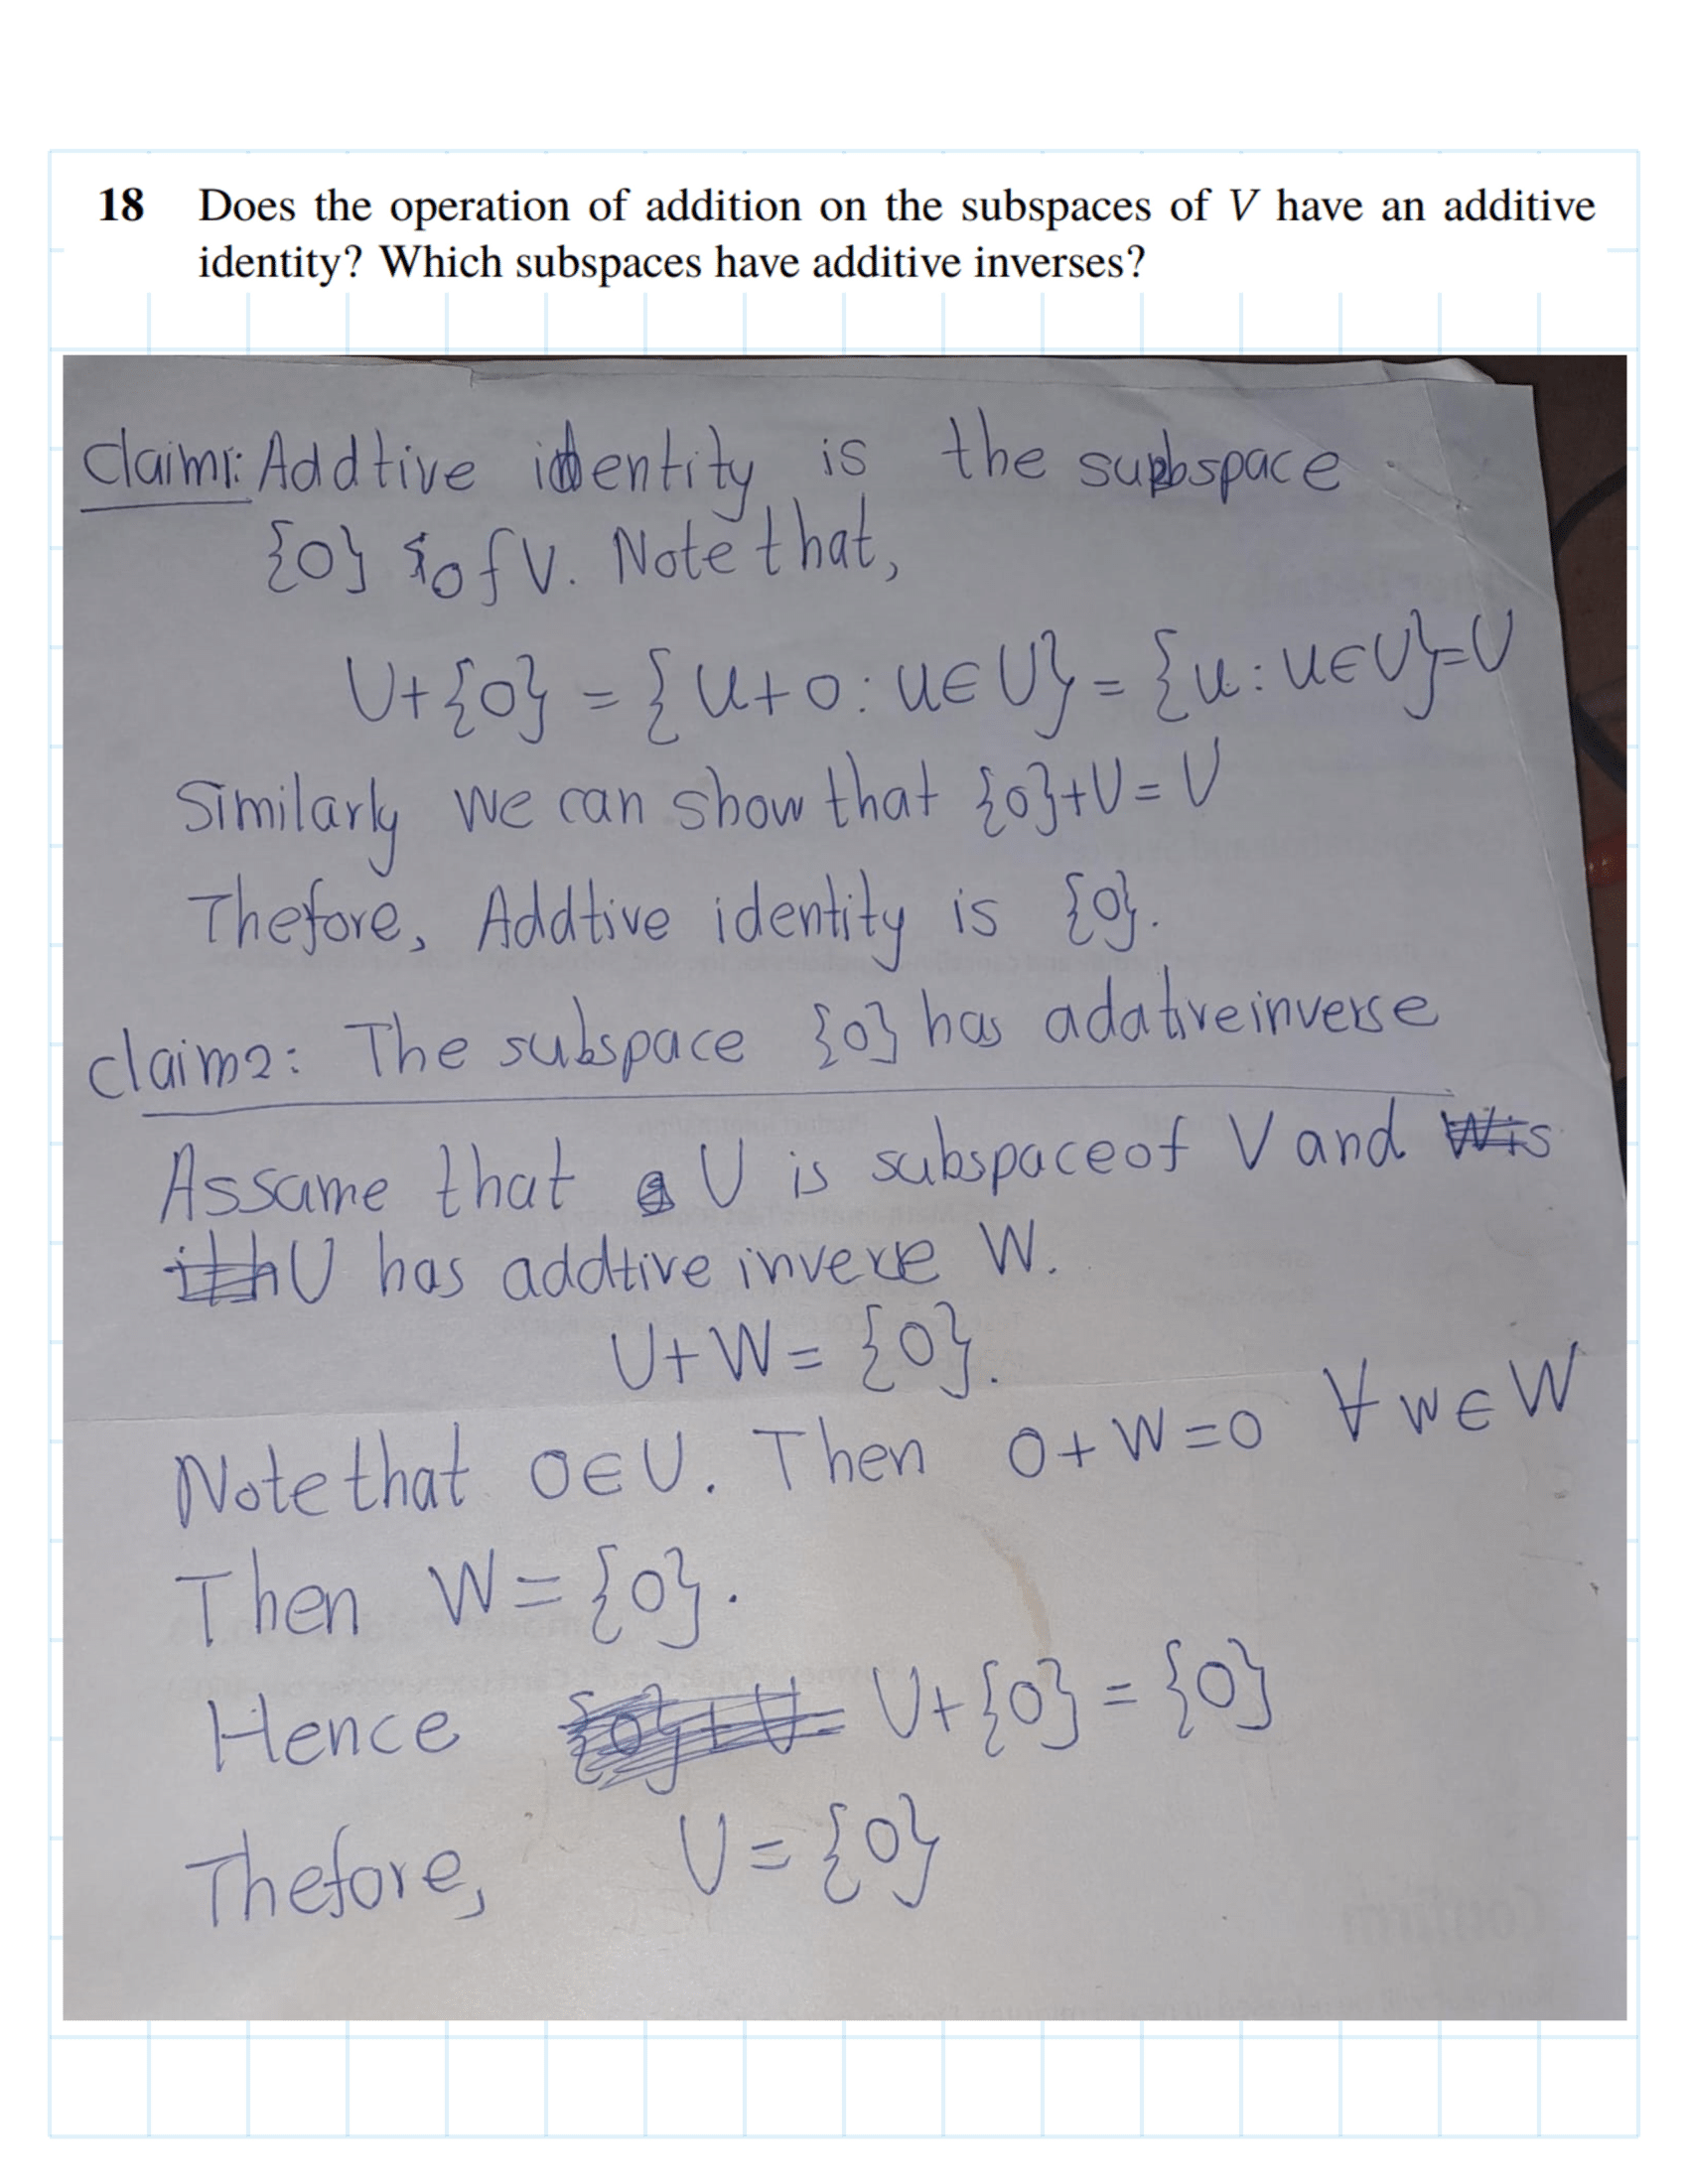 18 Does the operation of addition on the subspaces of V have an additive
identity? Which subspaces have additive inverses?
Claim1: Addtive identity is the subspace
{0} of V. Note that,
U+{0} = {u+0: u∈U} = {u: u∈U}=U
Similarly we can show that {0}+U=U
Thefore, Addtive identity is {0}.
claim2: The subspace {0} has adative inverse
Assame that U is subspace of V and
U has addtive invere W.
U+W= {0}.
Note that 0∈U. Then 0+w=0 ∀ w∈W
Then W={0}.
Hence U+{0}={0}
Thefore, U={0}